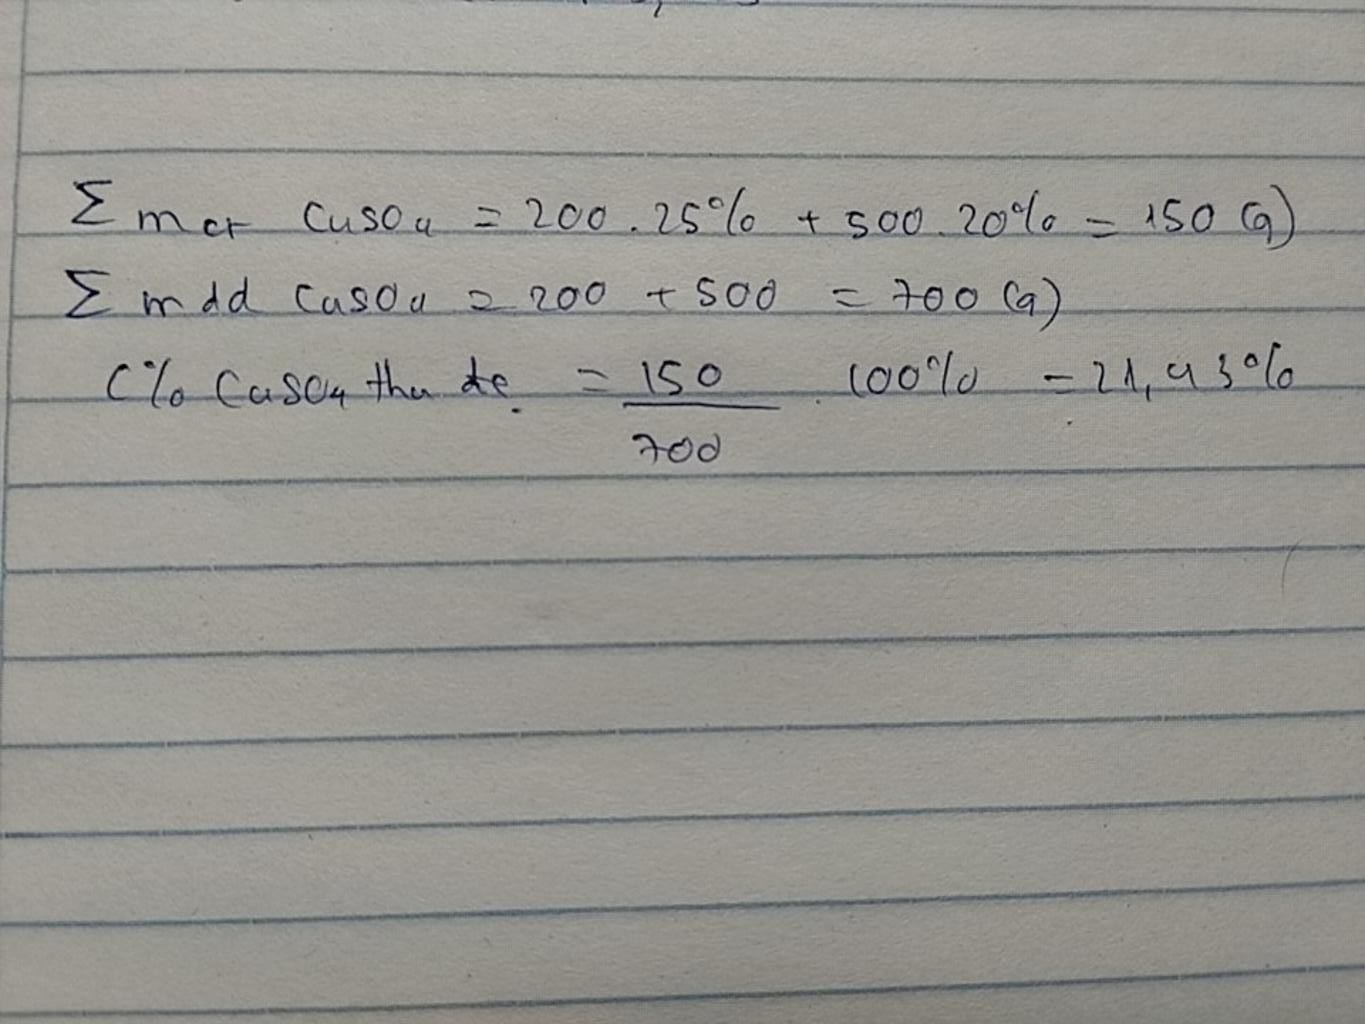 Σ mct CuSO4 = 200 . 25% + 500 . 20% = 150 (g)
Σ mdd CuSO4 = 200 + 500 = 700 (g)
C% CuSO4 thu dc = 150 . 100% = 21,43%
700